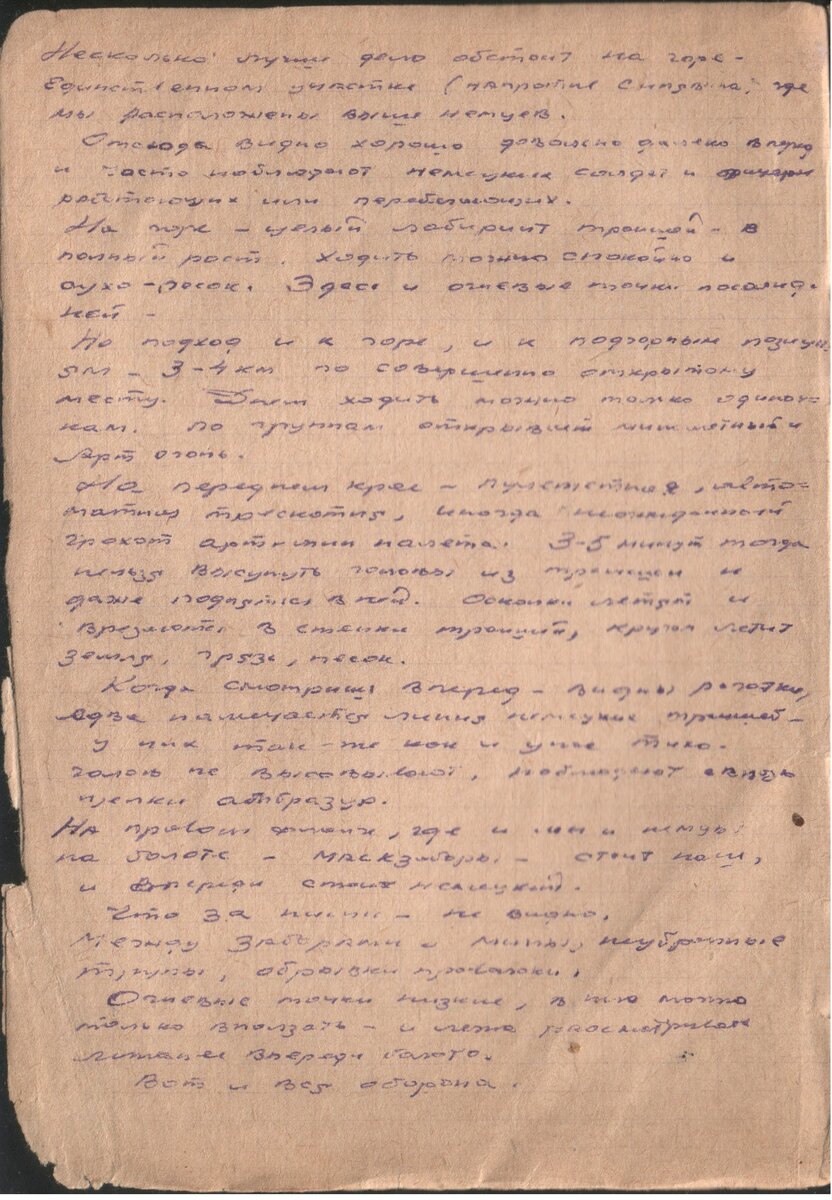 Несколько лучше дело обстоит на горе –
Единственном участке (напротив Синявина, где
мы расположены выше немцев.
Отсюда видно хорошо довольно далеко вперед
и часто наблюдают немецких солдат и
работающих или перебегающих.
На горе – целый лабиринт траншей – в
полный рост. Ходить можно спокойно и
сухо – песок. Здесь и огневые точки посолид-
ней –
Но подход и к горе, и к подгорным позици
ям – 3-4 км по совершенно открытому
месту. Днем ходить можно только одиноч-
кам. По группам открывают минометный и
Арт огонь.
На переднем крае – пулеметная, авто-
матная трескотня, иногда неожиданный
грохот арт и мин налета. 3-5 минут тогда
нельзя высунуть головы из траншеи и
даже подняться в ней. Осколки летят и
врезаются в стенки траншей, кругом летит
земля, грязь, песок.
Когда смотришь вперед – видны рогатки,
едва намечается линия немецких траншей –
у них так-же как и у нас тихо.
голов не высовывают, наблюдают сквозь
щелки амбразур.
На правом фланге, где и мы и немцы
на болоте – маскзаборы – стоит наш,
и впереди стоит немецкий.
Что за ними – не видно.
Между заборами – мины, неубранные
трупы, обрывки проволоки.
Огневые точки низкие, в них можно
только вползать – и лежа рассматривать
лежащее впереди болото.
Вот и вся оборона.